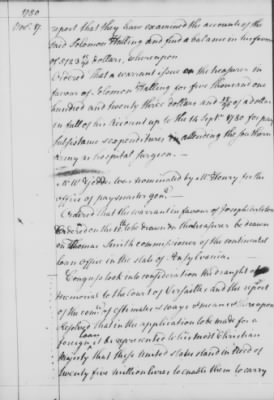 1780
Nov. 17.
report that they have examined the accounts of the
said Solomon Halling and find a balance in his favour
of 5123 dollars, whereupon
Ordered That a warrant issue on the treasurer in
favour of Solomon Halling for five thousand one
hundred and twenty three dollars and of a dollar
in full of his account up to the 14 Septr 1780 for pay
subsistance & expenditures in attending the southern
army as hospital surgeon.—
Mr. W. was nominated by Mr Henry to the
office of paymaster genl.—
Ordered that the warrant in favour of Joseph Carleton
ordered on the to be drawn on the treasurer be drawn
on Thomas Smith commissioner of the continental
loan office in the state of Pensylvania.
Congress took into consideration the draught of a
memorial to the court of Versailles and the report
of the comee. of estimates & ways & means & thereupon
Resolved that in the application to be made for a
foreign loan it be represented to his most Christian
Majesty that these United states stand in need of
twenty five million livres to enable them to carry